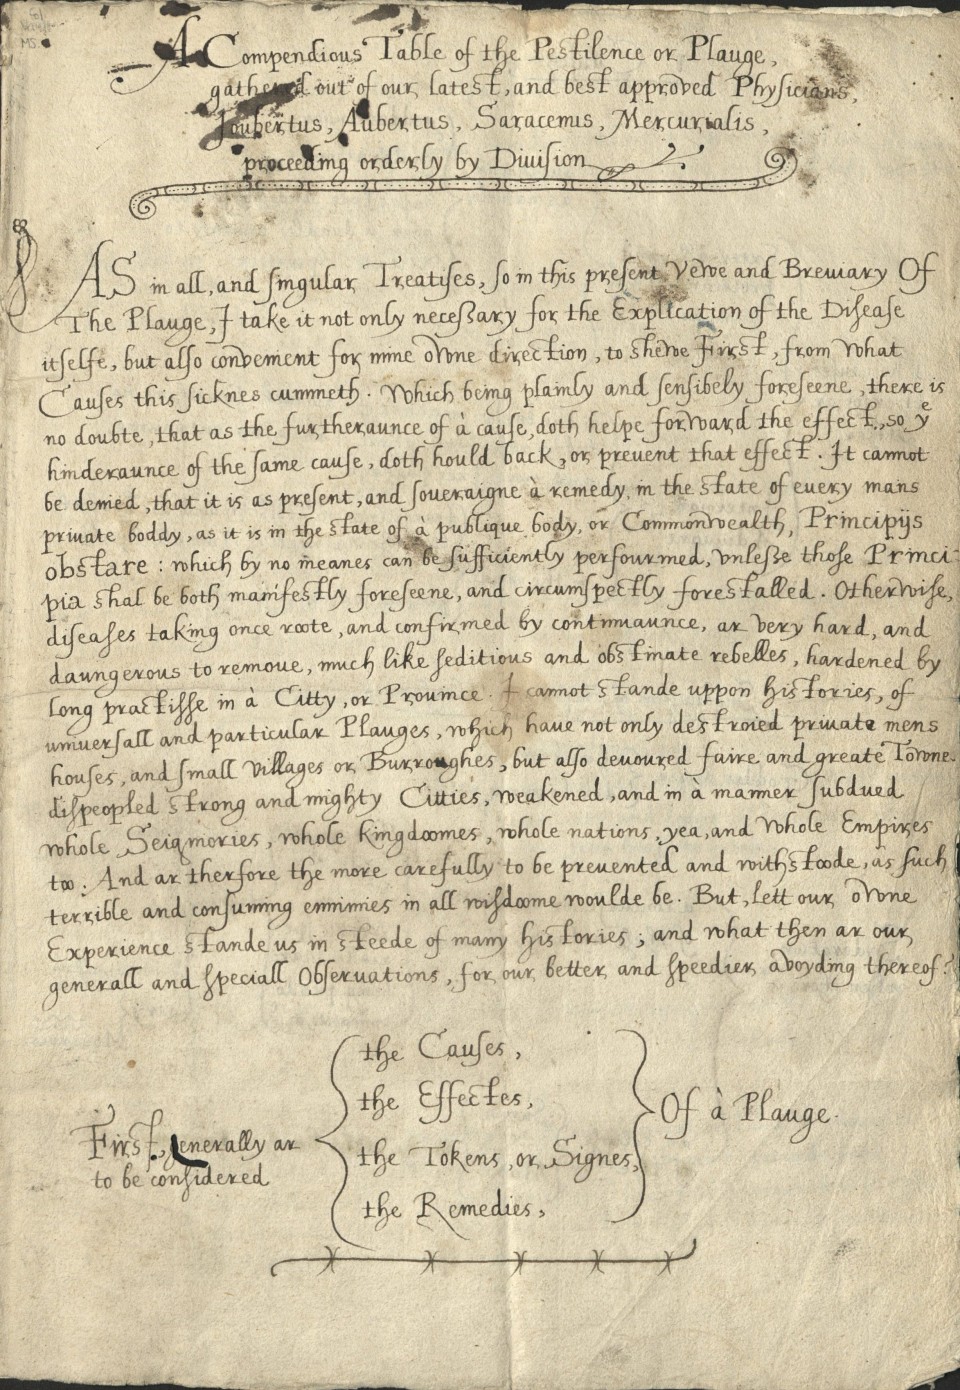 A Compendious Table of the Pestilence or Plauge,
gathered out of our latest, and best approved Physicians,
Joubertus, Aubertus, Saracenus, Mercurialis,
proceeding orderly by Diuision
AS in all, and singular Treatises, so in this present Vewe and Breuiary Of
The Plauge, I take it not only necessary for the Explication of the Disease
itselfe, but also convenient for mine owne direction, to shewe First, from what
Causes this sicknes cummeth. Which being plainly and sensibely foreseene, there is
no doubte, that as the furtheraunce of à cause, doth helpe forward the effect, so yͤ
hinderaunce of the same cause, doth hould back, or prevent that effect. It cannot
be denied, that it is as present, and soueraigne à remedy, in the state of euery mans
priuate boddy, as it is in the state of à publique body, or Commonwealth, Principijs
obstare: which by no meanes can be sufficiently perfourmed, vnlesse those Princi-
pia shal be both manifestly foreseene, and circumspectly forestalled. Otherwise,
diseases taking once roote, and confirmed by continuaunce, ar very hard, and
daungerous to remove, much like seditious and obstinate rebelles, hardened by
long practisse in à Citty, or Prouince. I cannot stande uppon histories, of
uniuersall and particular Plauges, which have not only destroied private mens
houses, and small villages or Burroughes, but also devoured faire and greate Towne
dispeopled strong and mighty Citties, weakened, and in à manner subdued
whole Seignories, whole kingdoomes, whole nations, yea, and whole Empires
too: And ar therfore the more carefully to be prevented and withstoode, as such
terrible and consuming ennimies in all wisdoome woulde be. But, lett our owne
Experience stande us in steede of many histories; and what then ar our
generall and speciall Observations, for our better and speedier avoyding thereof?
First, generally ar
to be considered
the Causes,
the Effectes,
the Tokens, or Signes,
the Remedies,
Of à Plauge.